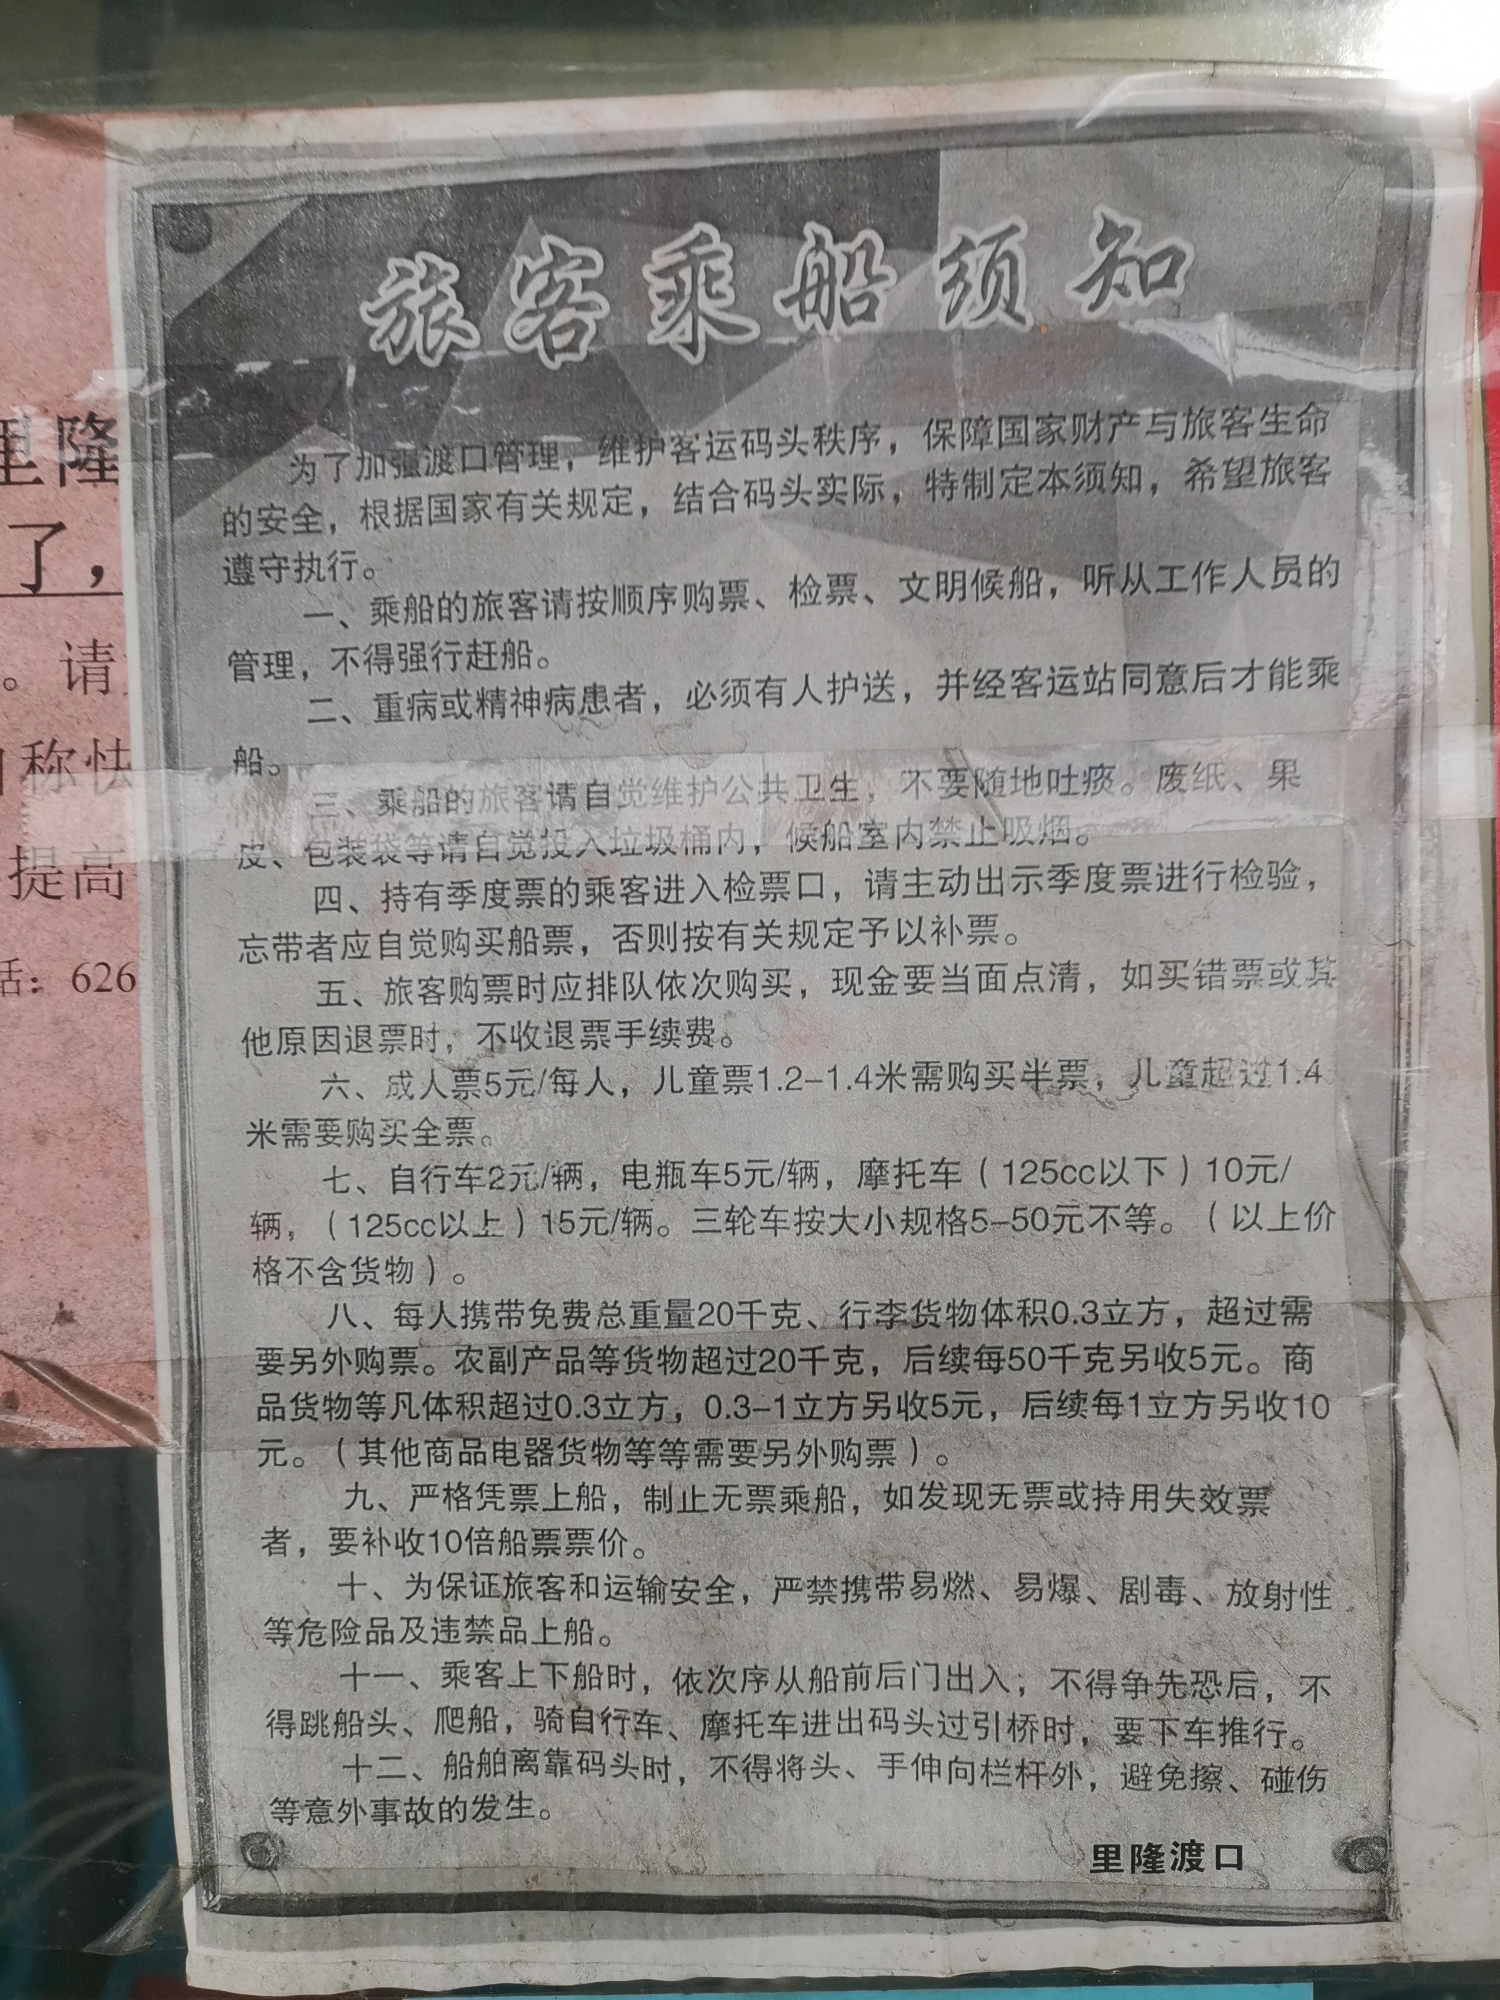 旅客乘船须知
为了加强渡口管理，维护客运码头秩序，保障国家财产与旅客生命
的安全，根据国家有关规定，结合码头实际，特制定本须知，希望旅客
遵守执行。
一、乘船的旅客请按顺序购票、检票、文明候船，听从工作人员的
管理，不得强行赶船。
二、重病或精神病患者，必须有人护送，并经客运站同意后才能乘
船。
三、乘船的旅客请自觉维护公共卫生，不要随地吐痰。废纸、果
皮、包装袋等请自觉投入垃圾桶内，候船室内禁止吸烟。
四、持有季度票的乘客进入检票口，请主动出示季度票进行检验，
忘带者应自觉购买船票，否则按有关规定予以补票。
五、旅客购票时应排队依次购买，现金要当面点清，如买错票或其
他原因退票时，不收退票手续费。
六、成人票5元/每人，儿童票1.2-1.4米需购买半票，儿童超过1.4
米需要购买全票。
七、自行车2元/辆，电瓶车5元/辆，摩托车（125cc以下）10元/
辆，（125cc以上）15元/辆。三轮车按大小规格5-50元不等。（以上价
格不含货物）。
八、每人携带免费总重量20千克、行李货物体积0.3立方，超过需
要另外购票。农副产品等货物超过20千克，后续每50千克另收5元。商
品货物等凡体积超过0.3立方，0.3-1立方另收5元，后续每1立方另收10
元。（其他商品电器货物等等需要另外购票）。
九、严格凭票上船，制止无票乘船，如发现无票或持用失效票
者，要补收10倍船票票价。
十、为保证旅客和运输安全，严禁携带易燃、易爆、剧毒、放射性
等危险品及违禁品上船。
十一、乘客上下船时，依次序从船前后门出入；不得争先恐后，不
得跳船头、爬船，骑自行车、摩托车进出码头过引桥时，要下车推行。
十二、船舶离靠码头时，不得将头、手伸向栏杆外，避免擦、碰伤
等意外事故的发生。
里隆渡口
里隆
了，
。请
称怯
提高
话：626